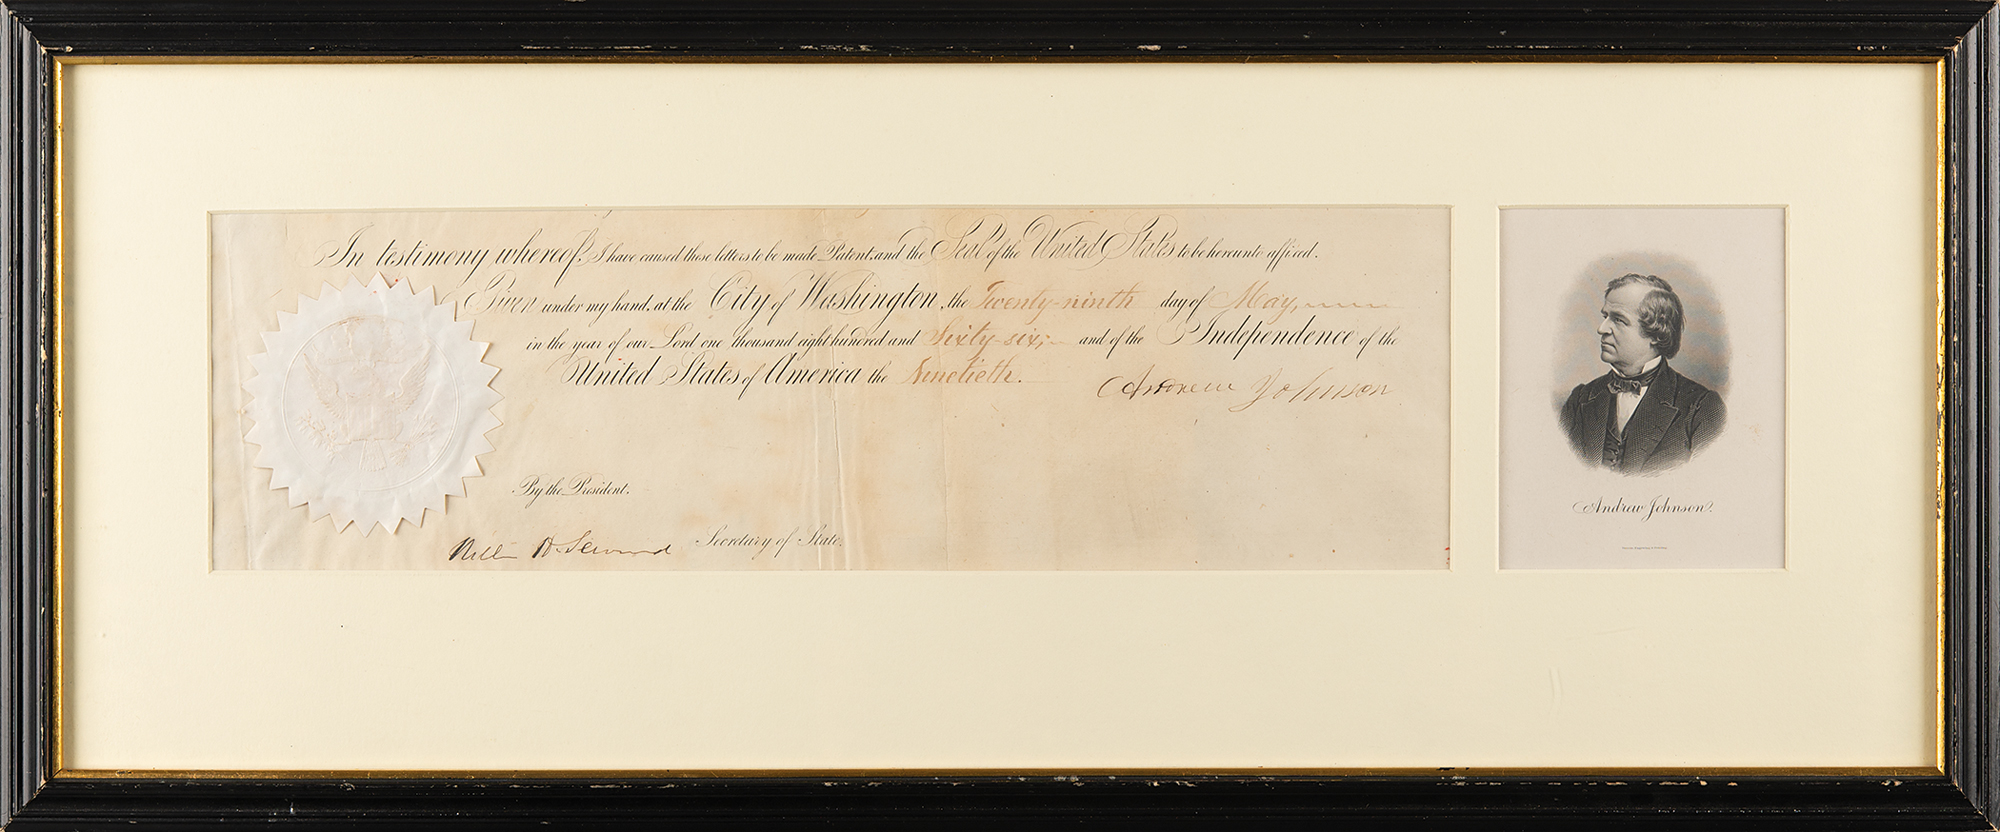 In testimony whereof, I have caused these letters to be made Patent, and the Seal of the United States to be hereunto affixed.
Given under my hand, at the City of Washington, the Twenty-ninth day of May,
in the year of our Lord one thousand eight hundred and Sixty-six; and of the Independence of the
United States of America the Ninetieth.
Andrew Johnson
By the President.
Willm H. Seward Secretary of State.
Andrew Johnson.